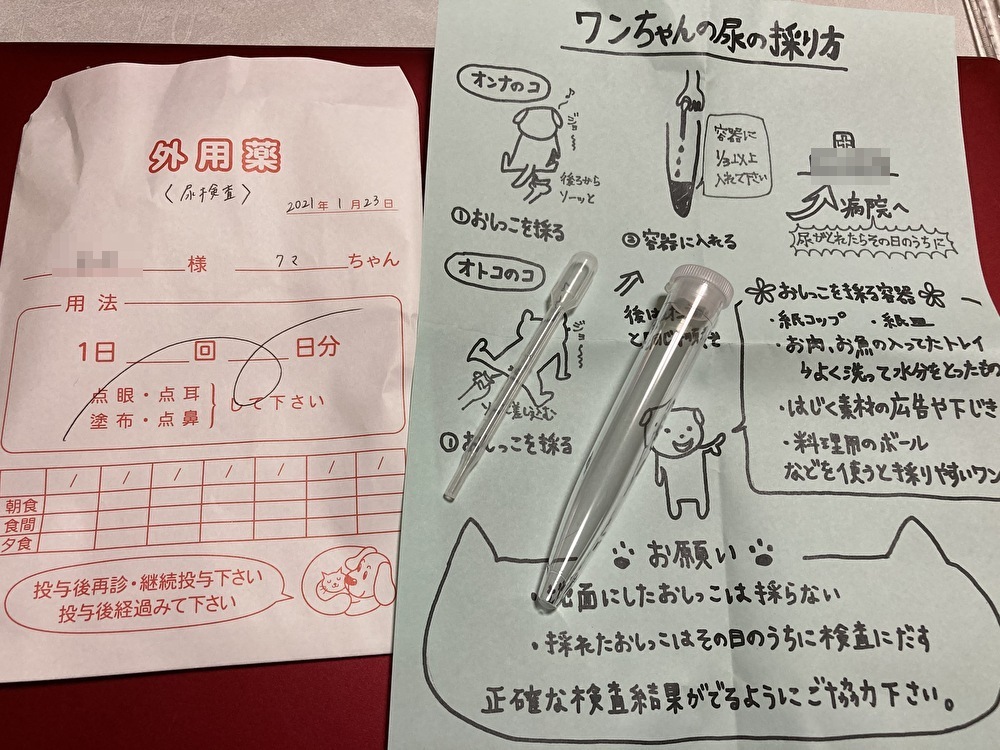 外用薬
〈尿検査〉
2021年1月23日
様 クマ ちゃん
用法
1日 回 日分
点眼・点耳
塗布・点鼻
して下さい
/ / / / / / /
朝食
食間
夕食
投与後再診・継続投与下さい
投与後経過みて下さい
ワンちゃんの尿の採り方
オンナのコ
♪
ジョ〜
後ろから
ソーッと
①おしっこを採る
容器に
1/3以上
入れて下さい
②容器に入れる
病院へ
尿がとれたらその日のうちに
オトコのコ
ジョ〜
①おしっこを採る
後は
おしっこを採る容器
・紙コップ ・紙皿
・お肉、お魚の入ってたトレイ
↳よく洗って水分をとったもの
・はじく素材の広告や下じき
・料理用のボール
などを使うと採りやすいワン
お願い
面にしたおしっこは採らない
・採れたおしっこはその日のうちに検査にだす
正確な検査結果がでるようにご協力下さい。